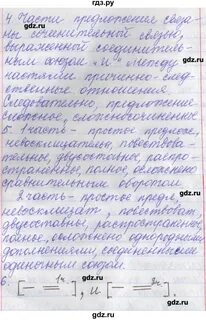 4. Части предложения связа-
ны сочинительной связью,
выраженной соединитель-
ным союзом "и". Между
частями причинно-след-
ственные отношения.
Следовательно, предложение
сложное, сложносочиненное
5. 1 часть - простое предлож.,
невосклицательн., повествова-
тельное, двусоставное, распро-
страненное, полное, осложнено
сравнительным оборотом
2 часть - простое предл.,
невосклицат., повествоват.,
двусоставн., распространенное,
полное, осложнено однородными
дополнениями, соединенными
одиночным союзом.
6. [— =], и [— =].
gdz.ru